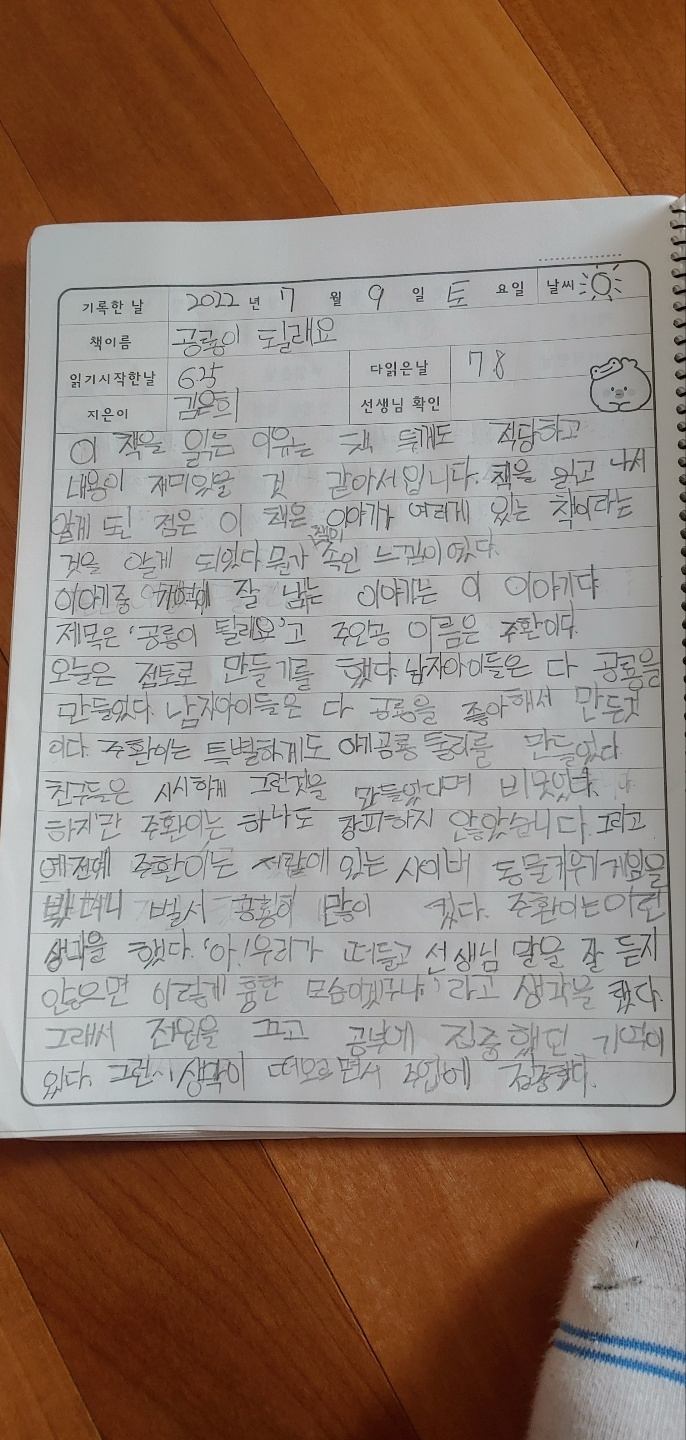 기록한 날 2022 년 7 월 9 일 토 요일 날씨
책이름 공룡이 될래요
읽기시작한날 6 25 다읽은날 7 8
지은이 김은희 선생님 확인
이 책을 읽은 이유는 책 두께도 적당하고
내용이 재미있을 것 같아서입니다. 책을 읽고 나서
알게 된 점은 이 책은 이야기가 여러게 있는 책이라는
것을 알게 되었다 뭔가 책이 속인 느낌이였다.
이야기중 기억에 잘 남는 이야기는 이 이야기다
제목은 '공룡이 될래요'고 주인공 이름은 주환이다.
오늘은 점토로 만들기를 했다. 남자아이들은 다 공룡을
만들었다. 남자아이들은 다 공룡을 좋아해서 만든것
이다. 주환이는 특별하게도 아기공룡 둘리를 만들었다
친구들은 시시하게 그런것을 만들었다며 비웃었다.
하지만 주환이는 하나도 창피하지 않았습니다. 그리고
예전에 주환이는 저랍에 있는 사이버 동물키우기게임을
벌서 많이 컸다. 주환이는 이런
생각을 했다. '아! 우리가 떠들고 선생님 말을 잘 듣지
않으면 이렇게 흉한 모습이겠구나.'라고 생각을 했다.
그래서 전원을 끄고 공부에 집중했던 기억이
있다. 그런 생각이 떠오르면서 수업에 집중했다.